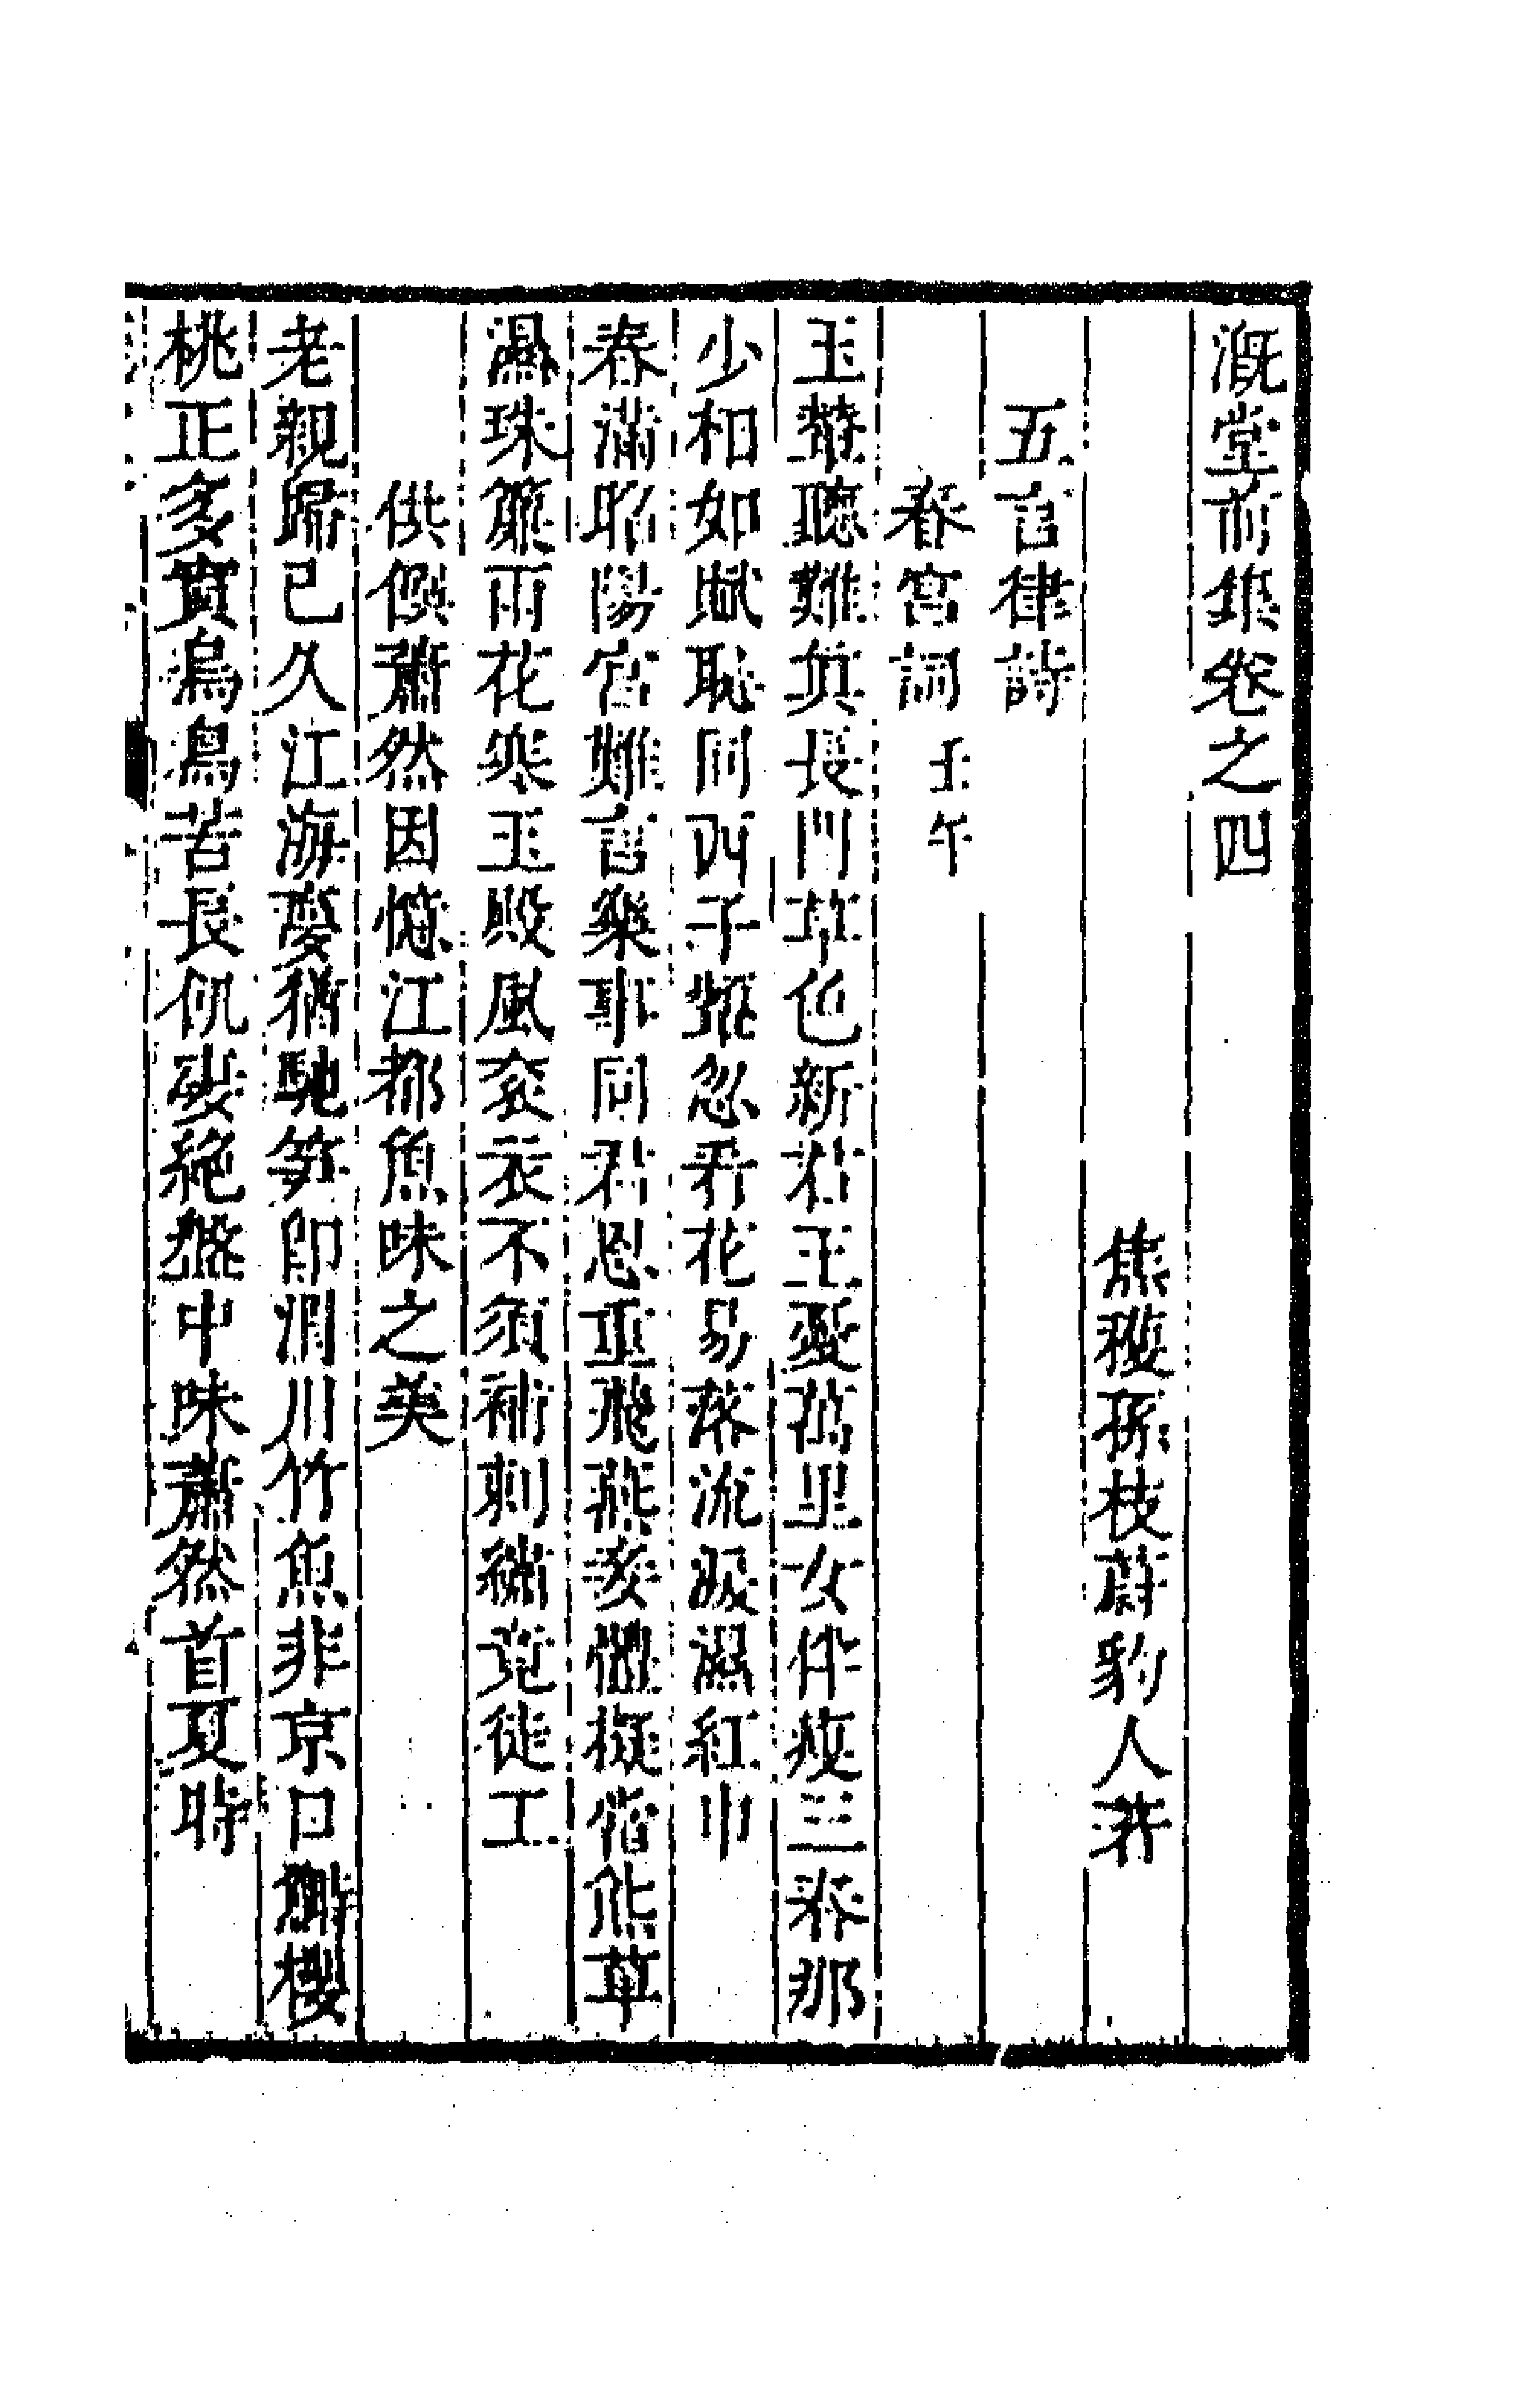 溉堂前集卷之四
焦穫孫枝蔚豹人著
五言律詩
春宮詞 壬午
玉輦聽難眞長門草色新君王愛萬里女伴瘦三春那
少相如賦恥同西子顰忍看花易落流淚濕紅巾
春滿昭陽宮難言樂事同君恩重飛燕妾體擬當熊草
濕珠簾雨花寒玉殿風衮衣不須補刺繡竟徒工
供饌蕭然因憶江都魚味之美
老親歸已久江海夢猶馳笋卽渭川竹魚非京口鰣櫻
桃正多實烏鳥苦長飢娶絶盤中味蕭然首夏時